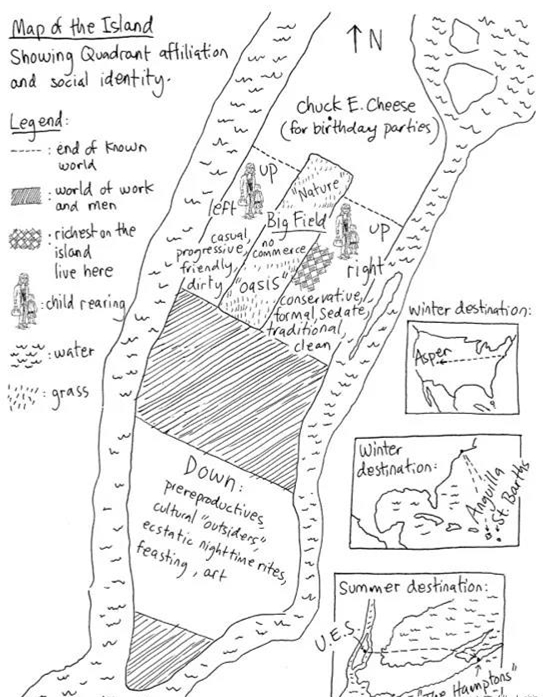 Map of the Island
Showing Quadrant affiliation
and social identity.
↑N
Legend:
: end of known
world
: world of work
and men
: richest on the
island
live here
: child rearing
: water
: grass
Chuck E. Cheese
(for birthday parties)
up
left
"Nature"
Big Field
no
commerce
"oasis"
casual,
progressive,
friendly,
dirty
up
right
conservative,
formal, sedate,
traditional,
clean
Down:
prereproductives,
cultural "outsiders,"
ecstatic nighttime rites,
feasting, art
Winter destination:
Aspen
Winter
destination:
Anguilla
St. Barths
Summer destination:
U.E.S.
Hamptons"